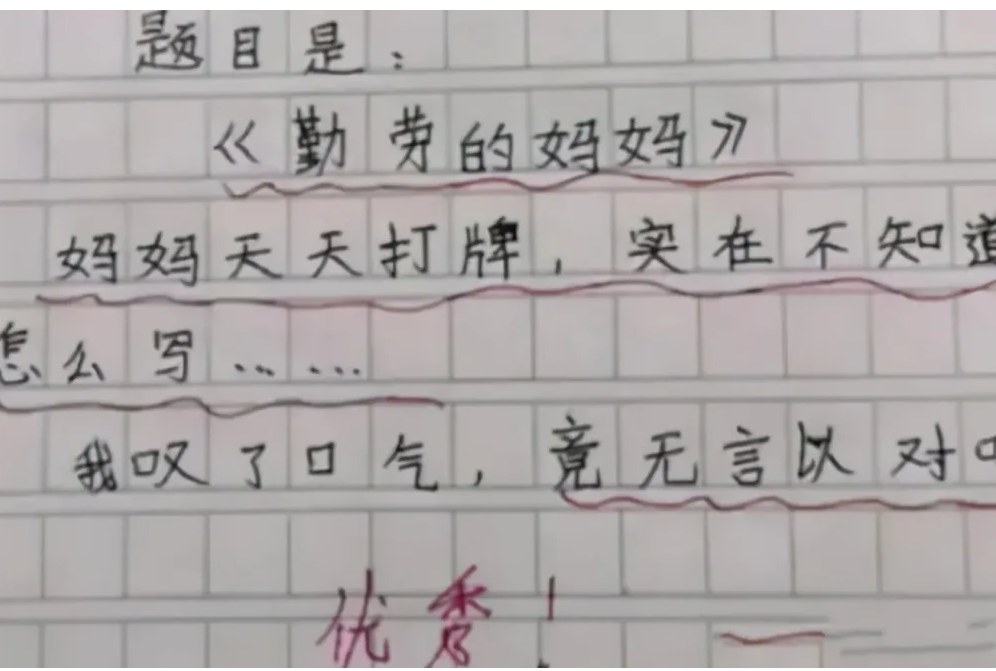 题目是：
《勤劳的妈妈》
妈妈天天打牌，实在不知道
怎么写……
我叹了口气，竟无言以对
优秀！